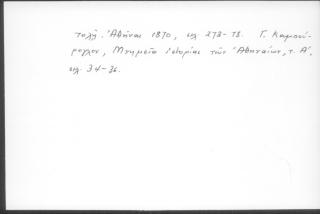 τολή. Ἀθῆναι 1870, σελ. 273-78. Γ. Καμπού-
ρογλου, Μνημεῖα Ἱστορίας τῶν Ἀθηναίων, τ. Α΄,
σελ. 34-36.